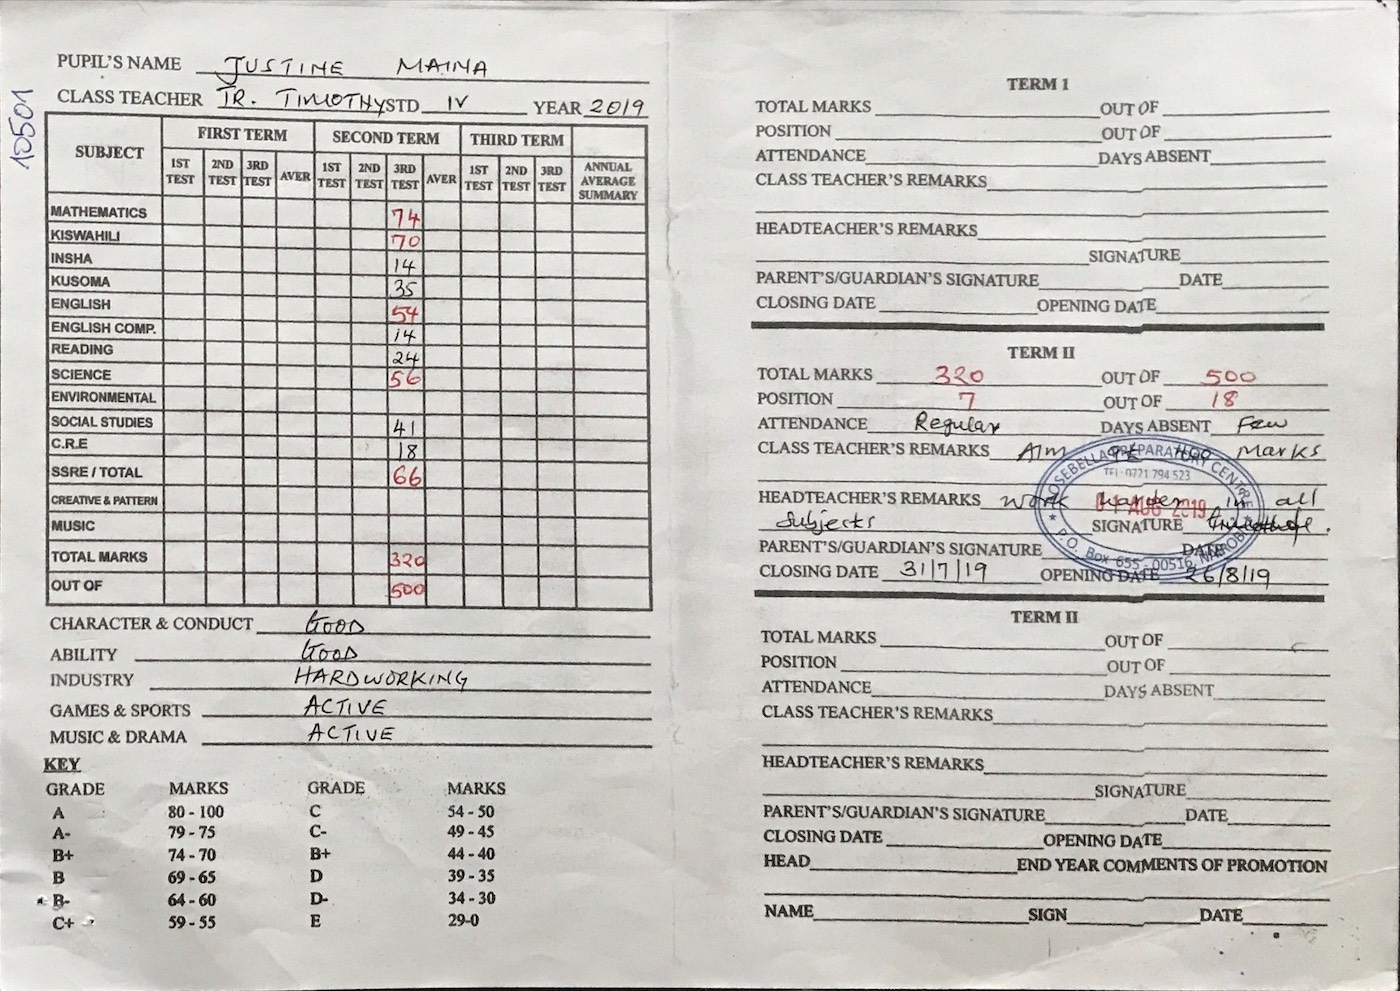 10501
PUPIL'S NAME JUSTINE MAINA
CLASS TEACHER TR. TIMOTHY STD IV YEAR 2019
SUBJECT FIRST TERM SECOND TERM THIRD TERM
1ST TEST 2ND TEST 3RD TEST AVER 1ST TEST 2ND TEST 3RD TEST AVER 1ST TEST 2ND TEST 3RD TEST ANNUAL AVERAGE SUMMARY
MATHEMATICS 74
KISWAHILI 70
INSHA 14
KUSOMA 35
ENGLISH 54
ENGLISH COMP. 14
READING 24
SCIENCE 56
ENVIRONMENTAL
SOCIAL STUDIES 41
C.R.E 18
SSRE / TOTAL 66
CREATIVE & PATTERN
MUSIC
TOTAL MARKS 320
OUT OF 500
CHARACTER & CONDUCT GOOD
ABILITY GOOD
INDUSTRY HARDWORKING
GAMES & SPORTS ACTIVE
MUSIC & DRAMA ACTIVE
KEY
GRADE MARKS GRADE MARKS
A 80 - 100 C 54 - 50
A- 79 - 75 C- 49 - 45
B+ 74 - 70 B+ 44 - 40
B 69 - 65 D 39 - 35
B- 64 - 60 D- 34 - 30
C+ 59 - 55 E 29-0
TERM I
TOTAL MARKS OUT OF
POSITION OUT OF
ATTENDANCE DAYS ABSENT
CLASS TEACHER'S REMARKS
HEADTEACHER'S REMARKS
SIGNATURE
PARENT'S/GUARDIAN'S SIGNATURE DATE
CLOSING DATE OPENING DATE
TERM II
TOTAL MARKS 320 OUT OF 500
POSITION 7 OUT OF 18
ATTENDANCE Regular DAYS ABSENT Few
CLASS TEACHER'S REMARKS Aim 400 Marks
HEADTEACHER'S REMARKS Work harder in all
Subjects SIGNATURE
PARENT'S/GUARDIAN'S SIGNATURE DATE
CLOSING DATE 31/7/19 OPENING DATE 26/8/19
ROSEBELLA PREPARATORY CENTRE
TEL: 0721 794 523
01 AUG 2019
P.O. Box 655 - 00516, NAIROBI
TERM II
TOTAL MARKS OUT OF
POSITION OUT OF
ATTENDANCE DAYS ABSENT
CLASS TEACHER'S REMARKS
HEADTEACHER'S REMARKS
SIGNATURE
PARENT'S/GUARDIAN'S SIGNATURE DATE
CLOSING DATE OPENING DATE
HEAD END YEAR COMMENTS OF PROMOTION
NAME SIGN DATE